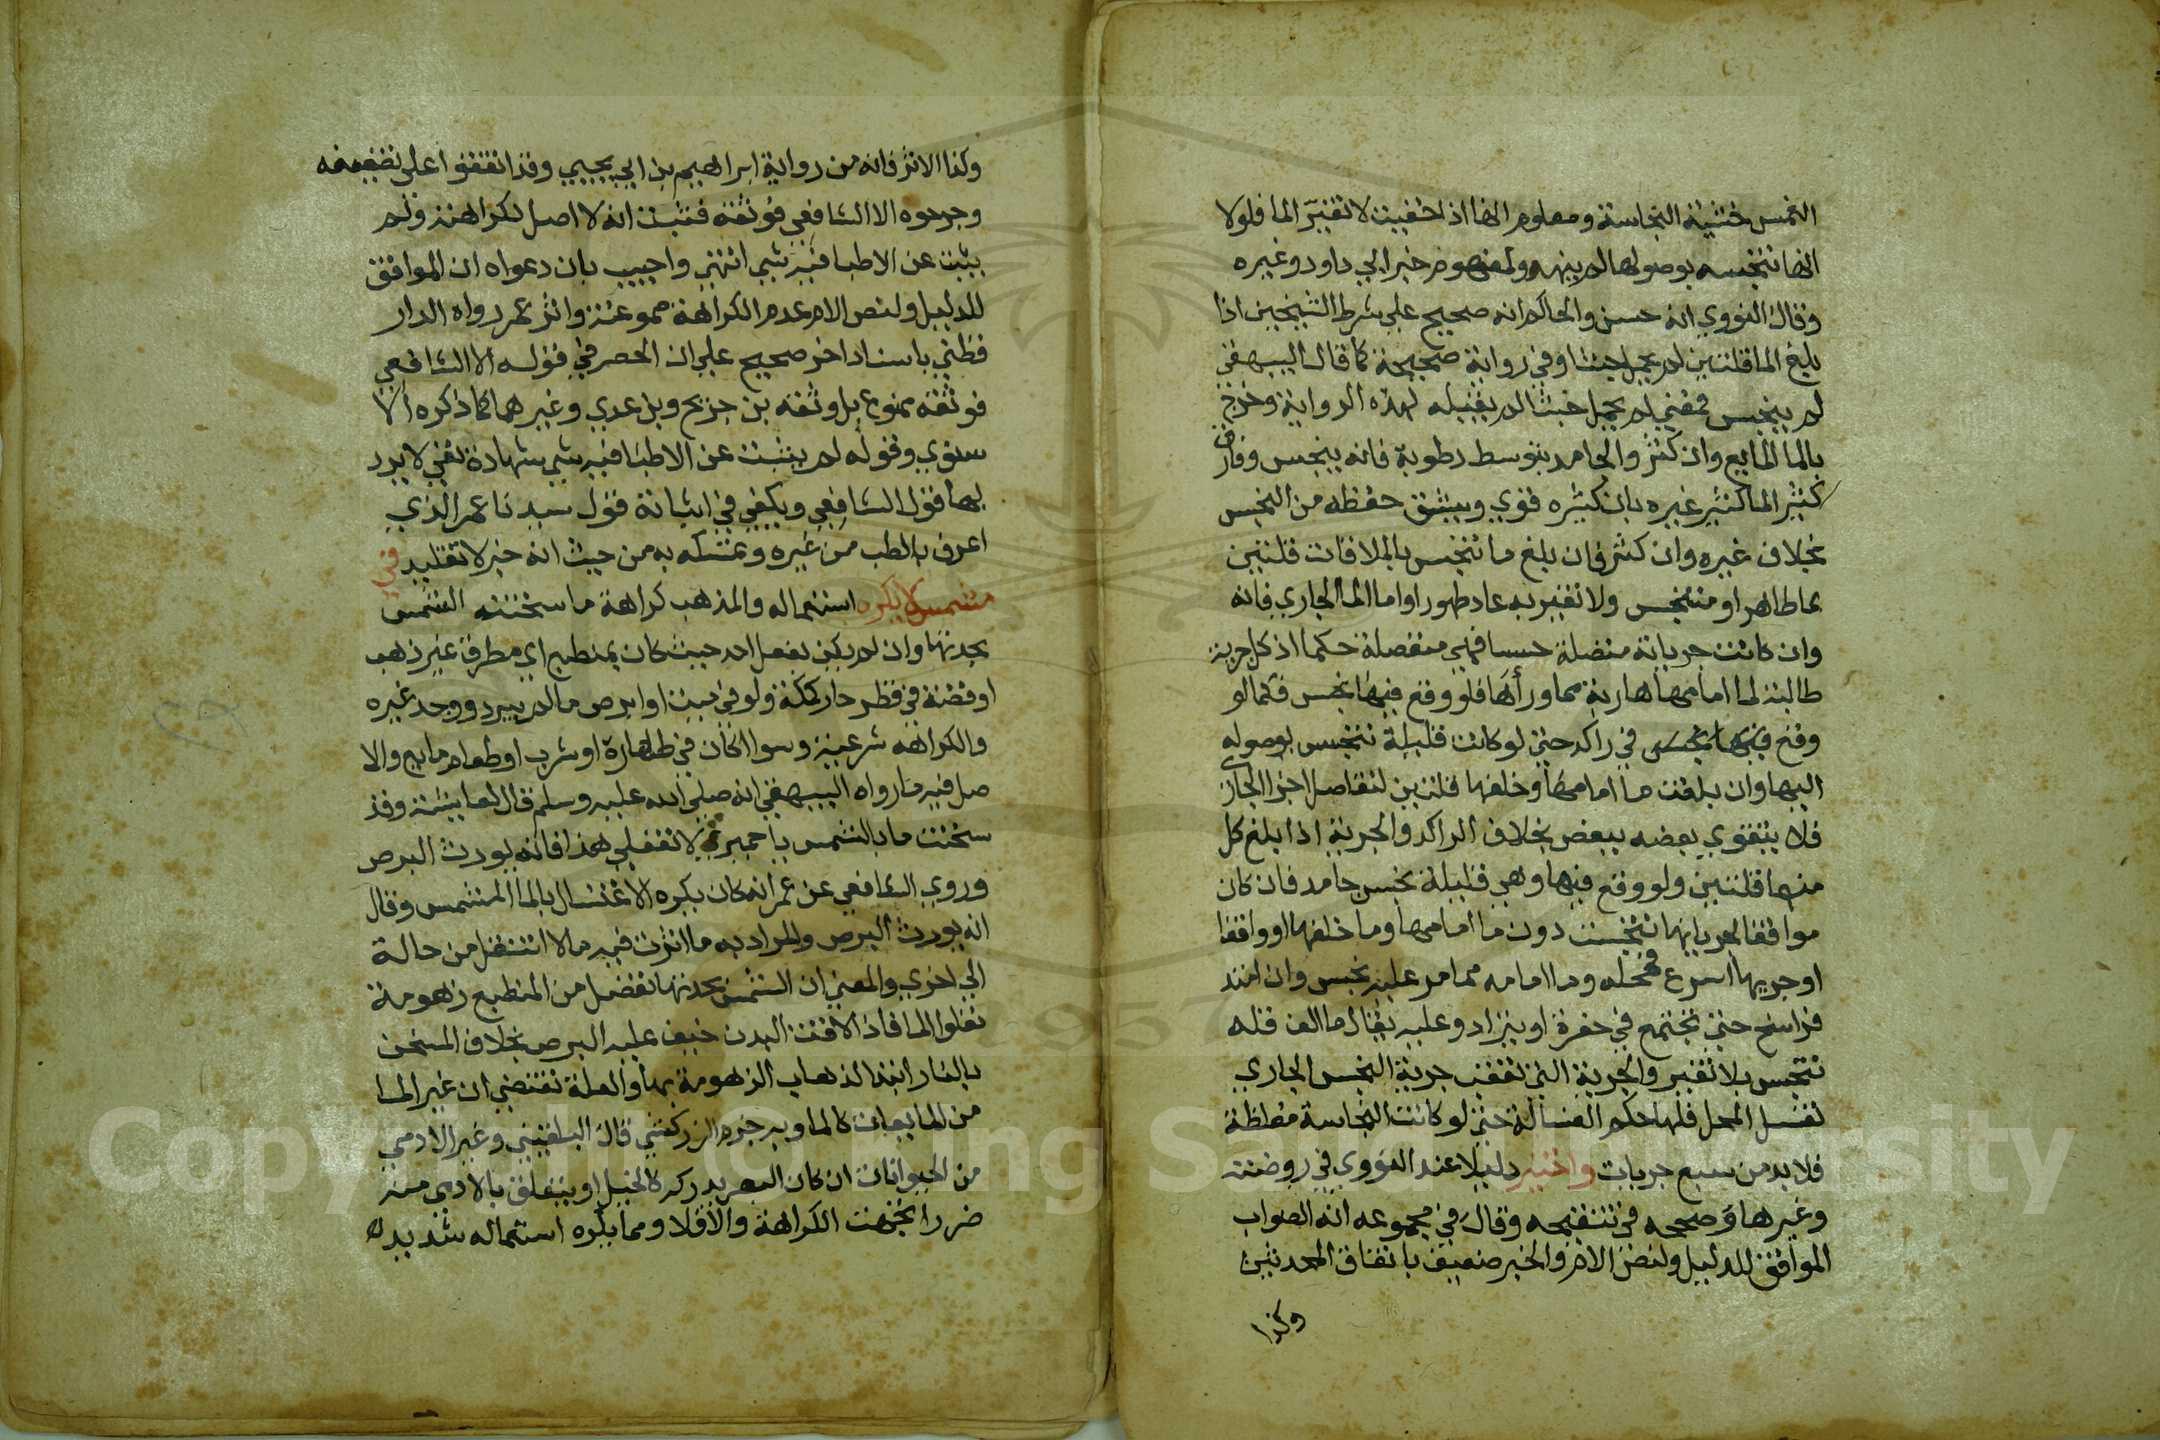 الخمس خشية النجاسة ومعلوم انها اذا خفيت لا تغير الما فلولا
انها تنجسه بوصولها لم ينهه ولمفهوم خبر ابي داود وغيره
وقال النووي انه حسن والحاكم انه صحيح على شرط الشيخين اذا
بلغ الما قلتين لم يحمل خبثا وفي رواية صحيحة كما قال البيهقي
لم ينجس فمعني لم يحمل خبثا لم يقبله لهذه الرواية وخرج
بالما المايع وان كثر والجامد بتوسط رطوبة فانه ينجس وفارق
كثير الما كثير غيره بان كثيره قوي ويشق حفظه من النجس
بخلاف غيره وان كثر فان بلغ ما تنجس بالملاقات قلتين
بما طاهر او متنجس ولا تغير به عاد طهورا واما الما الجاري فانه
وان كانت جرياته متصلة حسا فهي منفصلة حكما اذ كل جرية
طالبة لما امامها هاربة مما وراها فلو وقع فيها نجس فكما لو
وقع فيها نجس في راكد حتي لو كانت قليلة تنجس بوصوله
اليها وان بلغت ما امامها وخلفها قلتين لتفاصل اجزا الجاري
فلا يتقوي بعضه ببعض بخلاف الراكد والجرية اذا بلغ كل
منهما قلتين ولو وقع فيها وهي قليلة نجس جامد فان كان
موافقا لجريانها تنجست دون ما امامها وما خلفها او واقفا
او جريها اسرع فمحله وما امامه مما مر عليه نجس وان امتد
فراسخ حتي تجتمع في حفرة او يتراد وعليه يقال ما الف قلة
تنجس بلا تغير والجرية التي تعقب جرية النجس الجاري
تغسل المحل فلها حكم الغسالة حتي لو كانت النجاسة مغلظة
فلا بد من سبع جريات واختير دليلا عند النووي في روضته
وغيرها وصححه في تنقيحه وقال في مجموعه انه الصواب
الموافق للدليل ولنص الام والخبر ضعيف باتفاق المحدثين
وكذا
وكذا الاثر فانه من رواية ابراهيم بن ابي يحيي وقد اتفقوا على تضعيفه
وجرحوه الا الشافعي فوثقه فثبت انه لا اصل لكراهته ولم
يثبت عن الاطبا فيه شي انتهى واجيب بان دعواه ان الموافق
للدليل ولنص الام عدم الكراهة ممنوعة واثر عمر رواه الدار
قطني باسناد اخر صحيح على ان الحصر في قوله الا الشافعي
فوثقه ممنوع بل وثقه بن جريج وبن عدي وغيرهما كما ذكره الا
سنوي وقوله لم يثبت عن الاطبا فيه شي شهادة نفي لا يرد
بها قول الشافعي ويكفي في اثباته قول سيدنا عمر الذي
اعرف بالطب من غيره وتمسكه به من حيث انه خبر لا تقليد في
مشمس لا يكره استعماله والمذهب كراهة ما سخنته الشمس
بحدتها وان لم يكن بفعل احد حيث كان بمنطبع اي مطرق غير ذهب
او فضة في قطر حار كمكة ولو في ميت او ابرص ما لم يبرد ووجد غيره
والكراهه شرعية وسوا اكان في طهارة او شرب او طعام مايع والا
صل فيه ما رواه البيهقي انه صلي الله عليه وسلم قال لعايشة وقد
سخنت ما بالشمس يا حميرة لا تفعلي هذا فانه يورث البرص
وروي الشافعي عن عمر انه كان يكره الاغتسال بالما المشمس وقال
انه يورث البرص والمراد به ما اثرت فيه ما لا انتقل من حالة
الي اخري والمعني ان الشمس بحدتها تفصل من المنطبع زهومة
تعلوا الما فاذا لاقت البدن خيف عليه البرص بخلاف المسخن
بالنار ابتدا لذهاب الزهومة بها والعلة تقتضي ان غير الما
من المايعات كالما وبه جزم الزركشي قال البلقيني وغير الادمي
من الحيوانات ان كان البرص يدركه كالخيل او يتعلق بالادمي منه
ضررا تجهت الكراهة والا فلا ومما يكره استعماله شديد